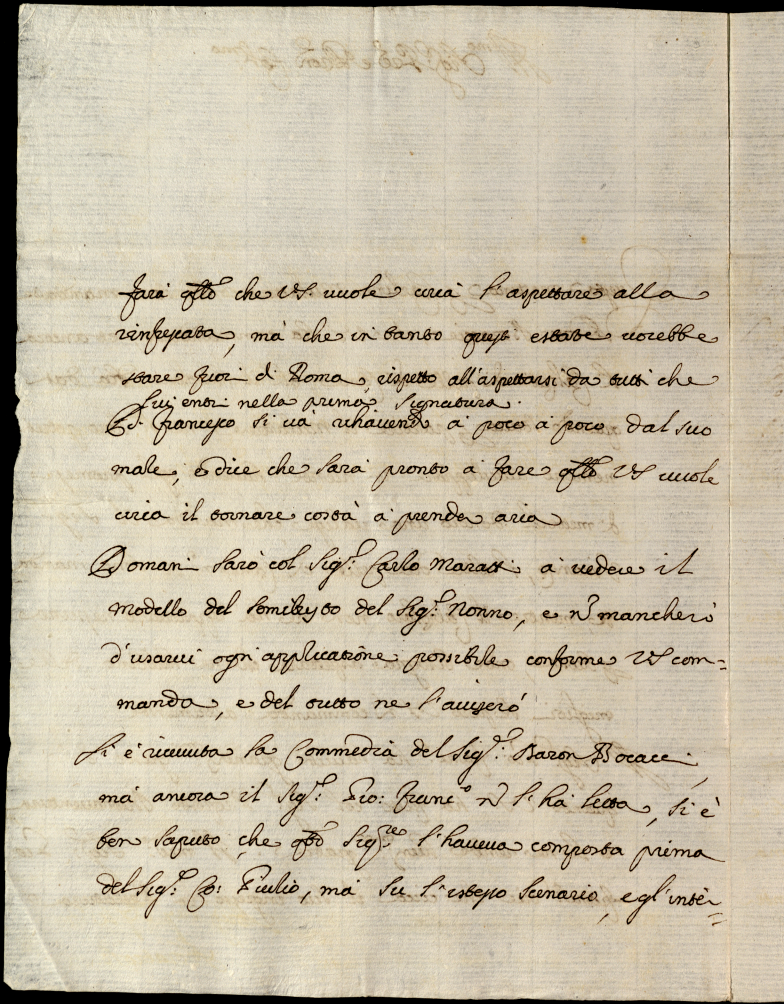 farà qllo che VS. vuole circa l'aspettare alla
rinfrescata, mà che in tanto quest' estate vorebbe
stare fuori di Roma, rispetto all'aspettarsi da tutti che
lui entri nella prima Signatura.
D. Francesco si và rihavendo à poco à poco dal suo
male, e dice che sarà pronto à fare qllo VS vuole
circa il tornare costà à prender aria
Domani sarò col Sigr. Carlo Maratti à vedere il
modello del del Sigr. Nonno, e nō mancherò
d'usarvi ogni applicatione possibile conforme VS com=
manda, e del tutto ne l'aviserò
Si è ricevuta la Commedia del Sigr. Baron Bocacci,
mà ancora il Sigr. Gio: Francº nō l'hà letta, si è
ben saputo, che qsto Sigre l'haveva composta prima
del Sigr. Co: Giulio, mà su l'istesso scenario, e gl'inter=